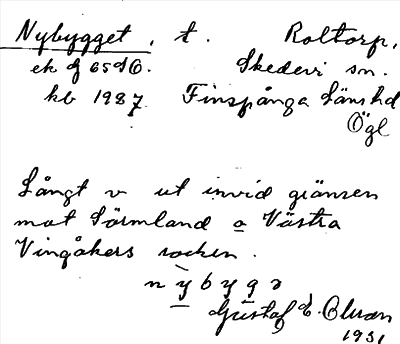 Nybygget, t. Roltorp,
ek 9 g 65 d Ö. Skedevi sn.
kb 1987 Finspånga läns hd
Ögl
Långt v ut invid gränsen
mot Sörmland o Västra
Vingåkers socken.
nybygə
Gustaf E. Olsson
1931